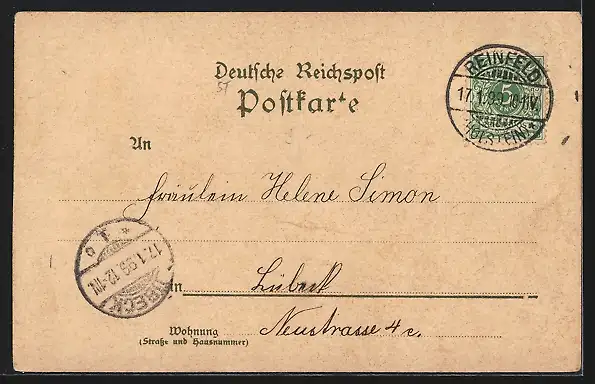 Deutsche Reichspost
Postkarte
REINFELD
5
17.1.99.
(HOLSTEIN)
An
Fräulein Helene Simon
17.1.99.12-1N
LÜBECK
in Lübeck
Wohnung
(Straße und Hausnummer)
Neustrasse 4c.